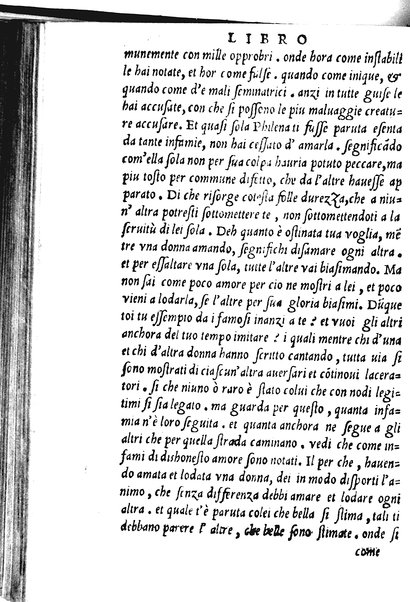 LIBRO
munemente con mille opprobri . onde hora come instabili
le hai notate, et hor come false . quando come inique, &
quando come d'e mali seminatrici . anzi in tutte guise le
hai accusate, con che si possono le piu maluaggie creatu-
re accusare. Et quasi sola Philena ti fusse paruta esenta
da tante infamie, non hai cessato d'amarla. segnificãdo
com'ella sola non per sua colpa hauria potuto peccare, ma
piu tosto per commune difetto, che da l'altre hauesse ap
parato . Di che risorge cotesta folle durezza, che a niu-
n'altra potresti sottomettere te , non sottomettendoti a la
seruitù di lei sola . Deh quanto è ostinata tua voglia, mẽ
tre vna donna amando, segnifichi disamare ogni altra .
et per essaltare vna sola, tutte l'altre vai biasimando. Ma
non sai come poco amore per cio ne mostri a lei , et poco
vieni a lodarla, se l'altre per sua gloria biasimi. Dũque
toi tu essempio da i famosi inanzi a te ? et vuoi gli altri
anchora del tuo tempo imitare ? i quali mentre chi d'una
et chi d'altra donna hanno scritto cantando, tutta uia si
sono mostrati di ciascun'altra auersari et cõtinoui lacera-
tori . si che niuno ò raro è stato colui che con nodi legi-
timi si sia legato . ma guarda per questo , quanta infa-
mia n'è loro seguita . et quanta anchora ne segue a gli
altri che per quella strada caminano . vedi che come in-
fami di dishonesto amore sono notati. Il per che, hauen-
do amata et lodata vna donna, dei in modo disporti l'a-
nimo , che senza differenza debbi amare et lodare ogni
altra . et quale t'è paruta colei che bella si stima, tali ti
debbano parere l'altre, che belle sono stimate . onde si
come